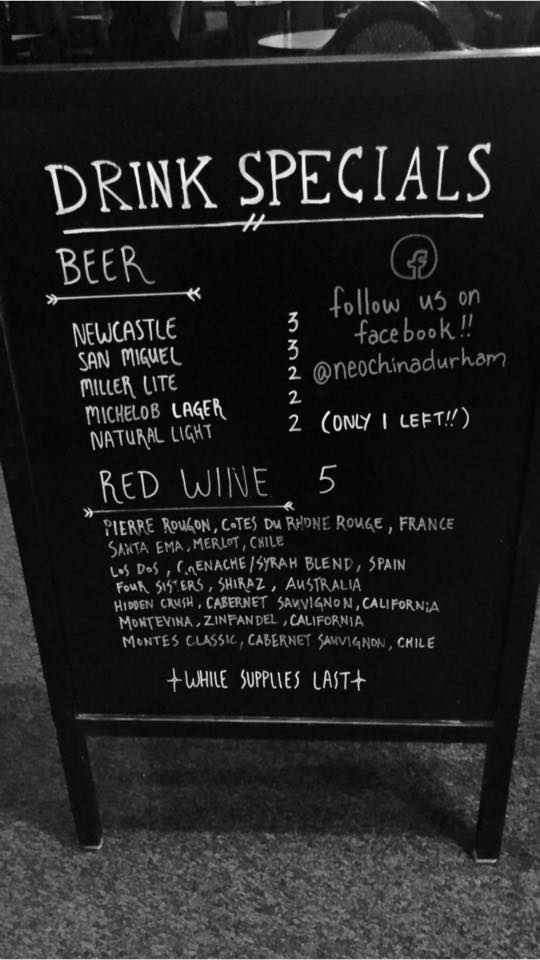 DRINK SPECIALS
BEER
NEWCASTLE 3
SAN MIGUEL 3
MILLER LITE 2
MICHELOB LAGER 2
NATURAL LIGHT 2 (ONLY 1 LEFT!!)
f
follow us on
facebook!!
@neochinadurham
RED WINE 5
PIERRE ROUGON, COTES DU RHONE ROUGE, FRANCE
SANTA EMA, MERLOT, CHILE
LOS DOS, GRENACHE/SYRAH BLEND, SPAIN
FOUR SISTERS, SHIRAZ, AUSTRALIA
HIDDEN CRUSH, CABERNET SAUVIGNON, CALIFORNIA
MONTEVINA, ZINFANDEL, CALIFORNIA
MONTES CLASSIC, CABERNET SAUVIGNON, CHILE
+WHILE SUPPLIES LAST+